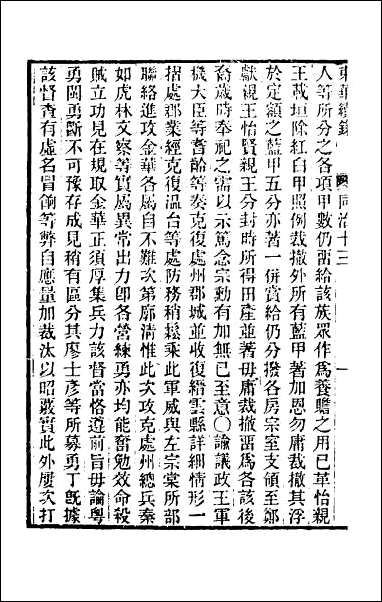 東華續錄 同治十三 一
人等所分之各項甲數仍畱給該族眾作爲養贍之用已革怡親
王載垣除紅白甲照例裁撤外所有藍甲著加恩勿庸裁撤其浮
於定額之藍甲五分亦著一併賞給仍分撥各房宗室支領至鄭
獻親王怡賢親王分封時所得田產並著毋庸裁撤畱爲各該後
裔歲時奉祀之需以示篤念宗勳有加無已至意〇諭議政王軍
機大臣等耆齡等奏克復處州郡城並收復縉雲縣詳細情形一
摺處郡業經克復溫台等處防務稍鬆乘此軍威與左宗棠所部
聯絡進攻金華各屬自不難次第廓清惟此次攻克處州總兵秦
如虎林文察等實屬異常出力卽各營練勇亦均能奮勉效命殺
賊立功見在規取金華正須厚集兵力該督當恪遵前旨毋論粵
勇閩勇斷不可豫存成見稍有區分其廖士彥等所募勇丁旣據
該督查有虛名冒餉等弊自應量加裁汰以昭嚴實此外屢次打